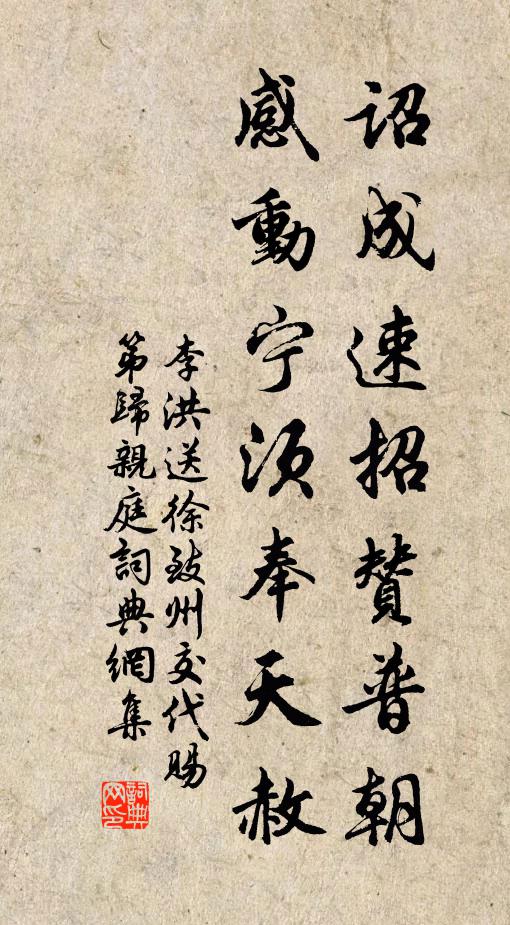 詔成速招賛普朝
感動宁須奉天赦
李洪送徐致州交代賜
第歸親庭詞典網集
詞典
网印